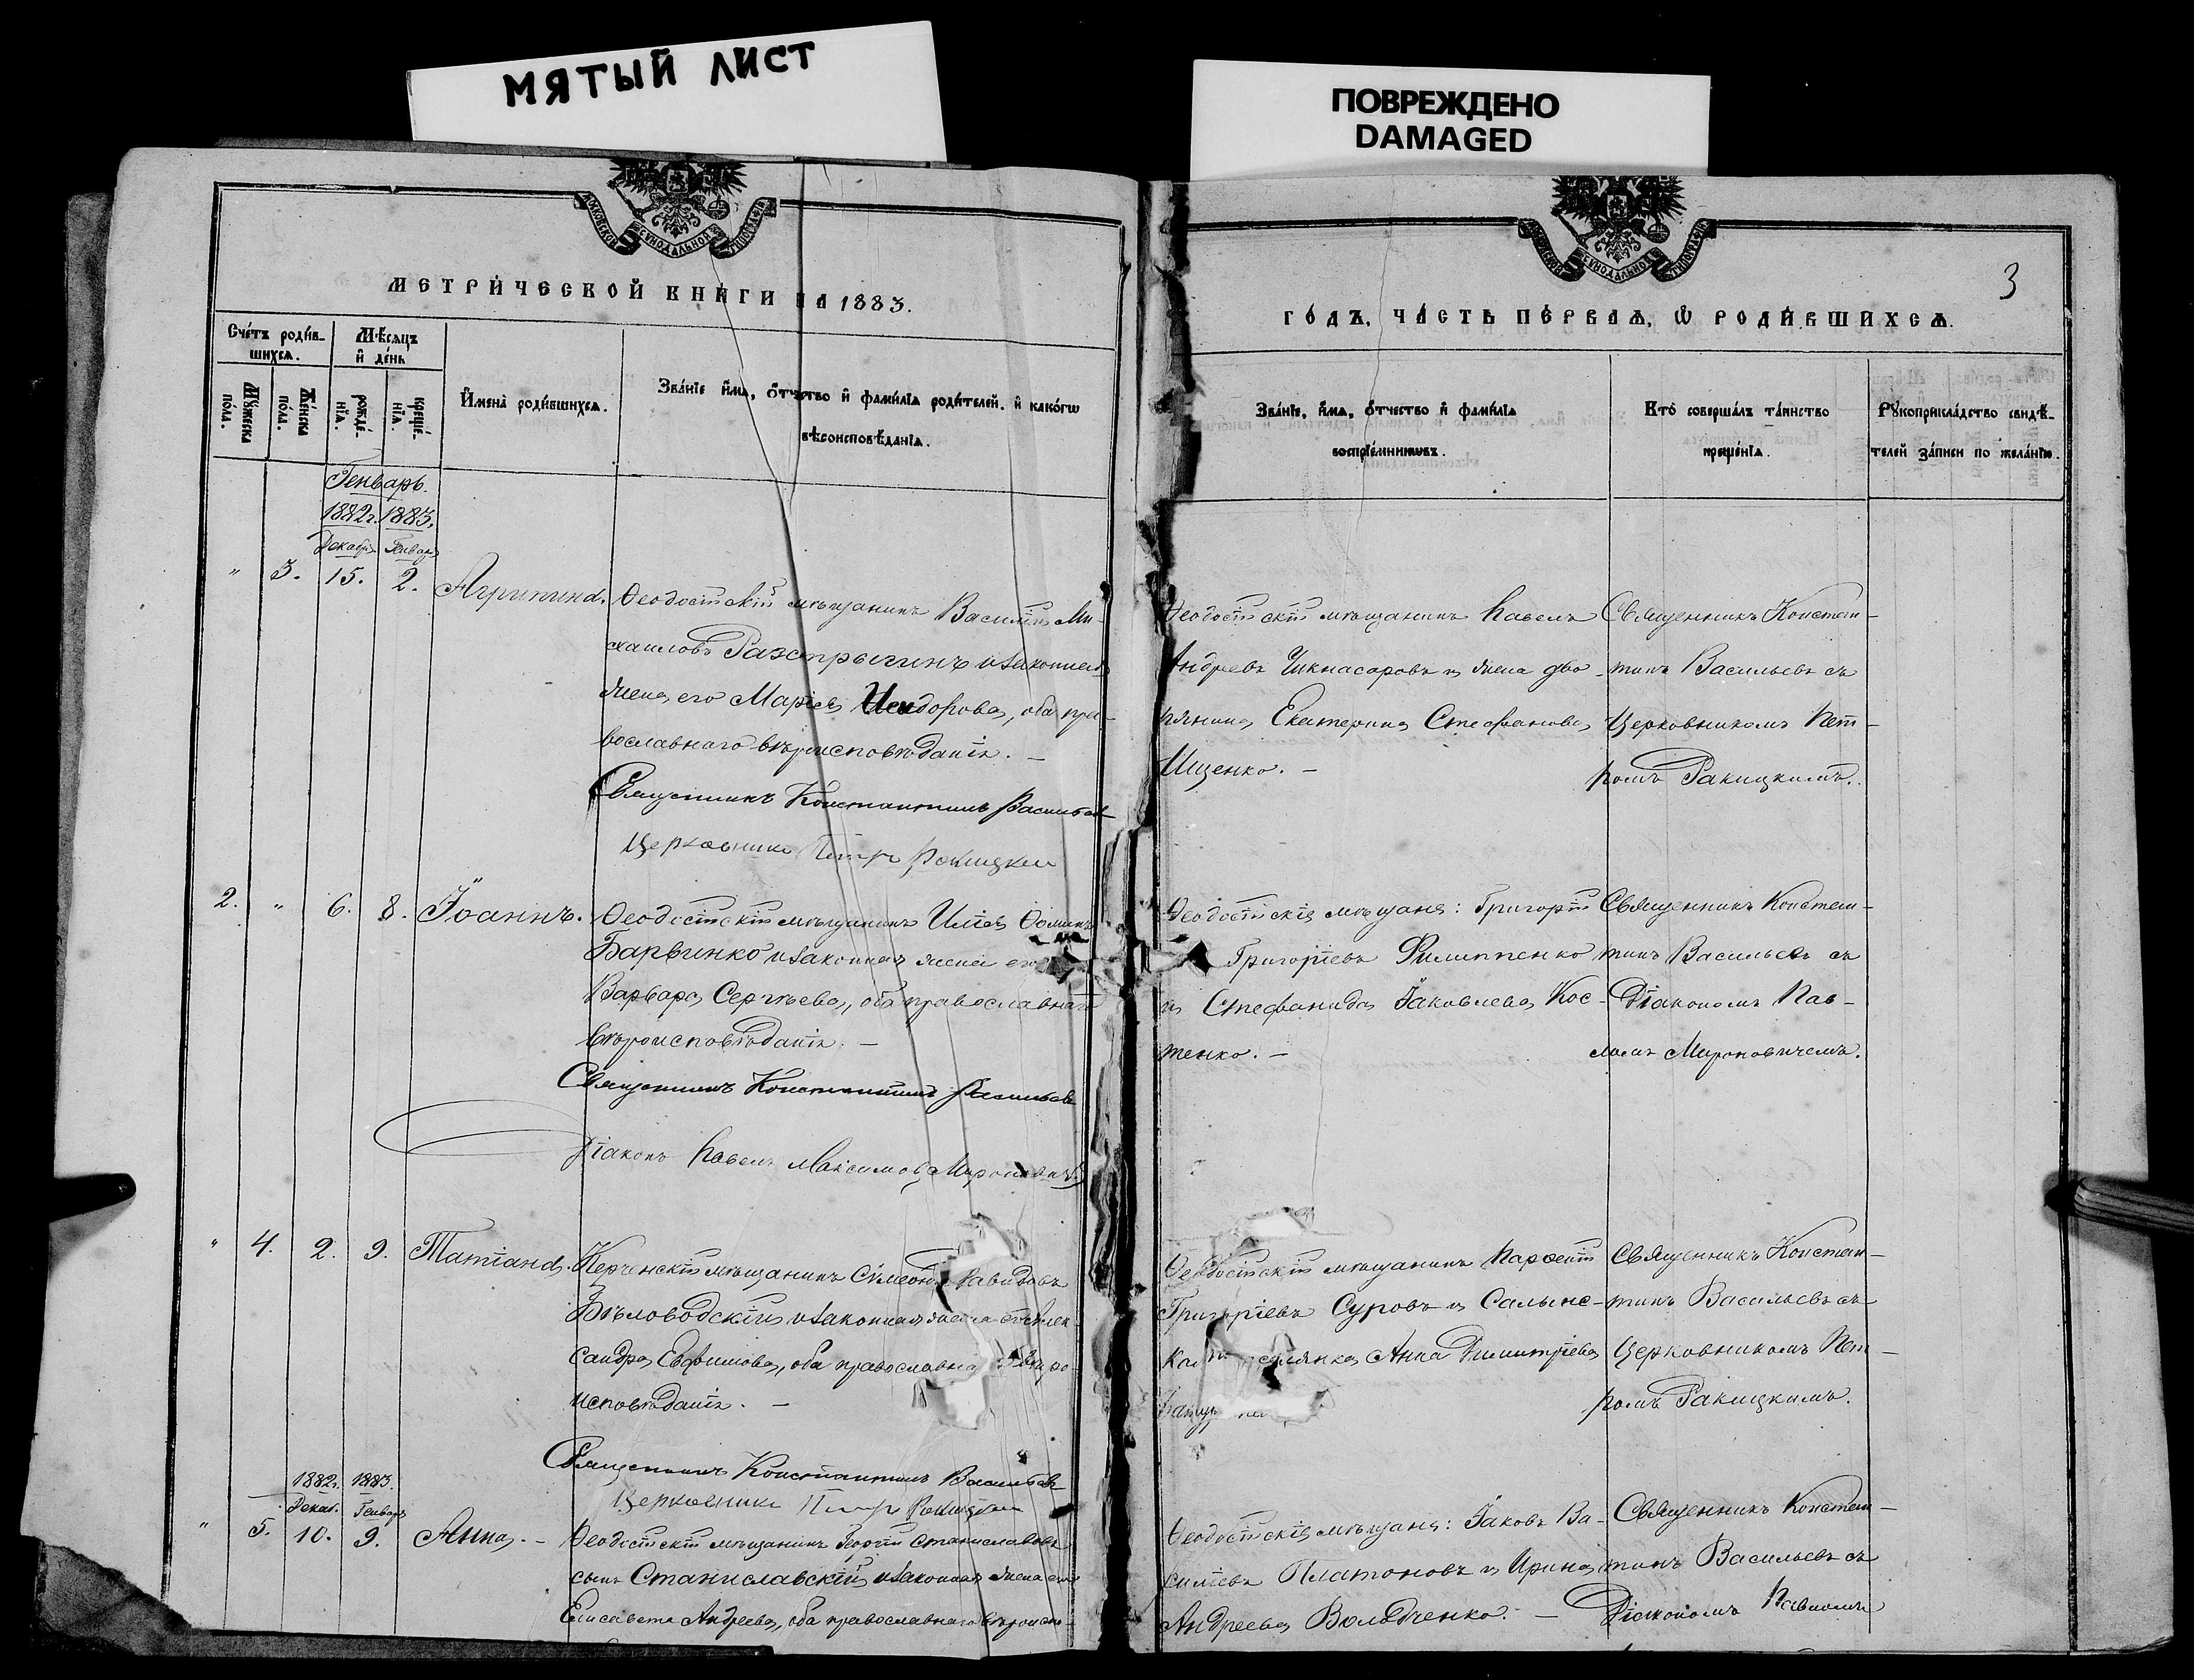 МЯТЫЙ ЛИСТ
ПОВРЕЖДЕНО
DAMAGED
МОСКОВСКОЙ СУНОДАЛЬНОЙ ТИПОГРАФІИ
МОСКОВСКОЙ СУНОДАЛЬНОЙ ТИПОГРАФІИ
3
МЕТРИ́ЧЕСКОЙ КНИ́ГИ НА 1883.
ГО́ДЪ, ЧА́СТЬ ПЕ́РВАѦ, Ѡ РОДИ́ВШИХСѦ.
Сче́тъ роди́в-
шихсѧ.
Мѣ́сѧцъ
и де́нь
Мꙋ́жеска
пола.
Же́нска
по́ла.
рожде́-
нїѧ.
креще́-
нїѧ.
И҆мена̀ роди́вшихсѧ.
Зва́нїе и҆́мѧ, ѻ҆́тчество и҆ фами́лїѧ роди́телей, и҆ како́гѡ
вѣроисповѣ́данїѧ.
Зва́нїе, и҆́мѧ, ѻ҆́тчество и҆ фами́лїѧ
воспрїе́мникѡвъ.
Кто̀ соверша́лъ та́инство
креще́нїѧ.
Рꙋкоприкла́дство свидѣ́-
телей за́писи по жела́нїю.
Генварь.
1882г. 1883.
Декабрь Генварь
" 3. 15. 2. Агрипина.
Ѳеодосійскій мѣщанинъ Василій Ми-
хаиловъ Разстрыгинъ и законная
жена его Марія Исидорова, оба пра-
вославнаго вѣроисповѣданія. –
Священникъ Константинъ Васильевъ
Церковникъ Петръ Ракицкій
Ѳеодосійскій мѣщанинъ Павелъ
Андреевъ и жена дво-
рянина Екатерина Стефанова
Ищенко. –
Священникъ Констан-
тинъ Васильевъ съ
Церковникомъ Пет-
ромъ Ракицкимъ.
2. " 6. 8. Іоаннъ.
Ѳеодосійскій мѣщанинъ Илія Ѳоминъ
Барвинко и законная жена его
Варвара Сергѣева, оба православнаго
вѣроисповѣданія. –
Священникъ Константинъ Васильевъ
Діаконъ Павелъ Максимовъ Мироновичъ
Ѳеодосійскія мѣщане: Григорій
Григоріевъ Филиппенко
и Стефанида Іаковлева Кос-
тенко. –
Священникъ Констан-
тинъ Васильевъ съ
Діакономъ Пав-
ломъ Мироновичемъ.
" 4. 2. 9. Татіана.
Керченскій мѣщанинъ Сѵмеонъ Давидовъ
Бѣловодскій и законная жена его Алек-
сандра Евфимова, оба православнаго вѣро-
исповѣданія. –
Священникъ Константинъ Васильевъ
Церковникъ Петръ Ракицкій
Ѳеодосійскій мѣщанинъ Парѳеній
Григоріевъ Суровъ и Салынс-
кая поселянка Анна Димитріева
Священникъ Констан-
тинъ Васильевъ съ
Церковникомъ Пет-
ромъ Ракицкимъ.
1882г. 1883.
Декаб. Генварь
" 5. 10. 9. Анна. –
Ѳеодосійскій мѣщанинъ Георгій Станиславовъ
сынъ Станиславскій и законная жена его
Елисавета Андреева, оба православнаго вѣроиспо-
Ѳеодосійскія мѣщане: Іаковъ Ва-
силіевъ Платоновъ и Ирина
Андреева Вольдченко. –
Священникъ Констан-
тинъ Васильевъ съ
Діакономъ Павломъ